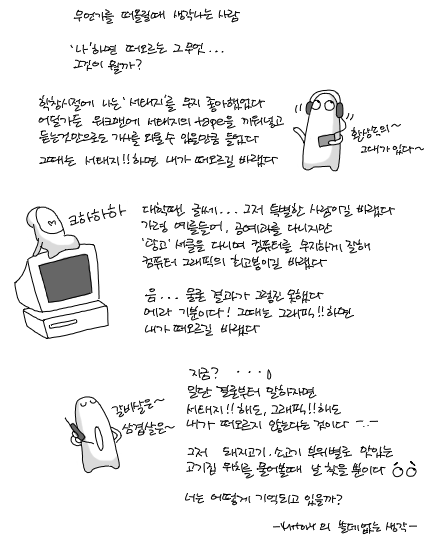 무언가를 떠올릴때 생각나는 사람
'나'하면 떠오르는 그무엇...
그것이 뭘까?
학창시절에 나는 '서태지'를 무지 좋아했었다
어딜가든 워크맨에 서태지의 tape을 끼워넣고
듣는것만으로도 가사를 외울수 있을만큼 들었다
그때는 서태지!! 하면 내가 떠오르길 바랬다
환상속의~
그대가 있다~
크하하하
대학때는 글쎄... 그저 특별한 사람이길 바랬다
가령 예를들어, 공예과를 다니지만
'광고' 세클을 다니며 컴퓨터를 무지하게 잘해
컴퓨터 그래픽의 최고봉이길 바랬다
음... 물론 결과가 그렇진 못했다
에라 기분이다! 그때는 그래픽!! 하면
내가 떠오르길 바랬다
지금? ...
일단 결론부터 말하자면
서태지!! 해도, 그래픽!! 해도
내가 떠오르지 않는다는 것이다 -.-
갈비살은~
삼겹살은~
그저 돼지고기. 소고기 부위별로 맛있는
고기집 위치를 물어볼때 날 찾을 뿐이다 ㅇㅇ
너는 어떻게 기억되고 있을까?
의 쓸데없는 생각-